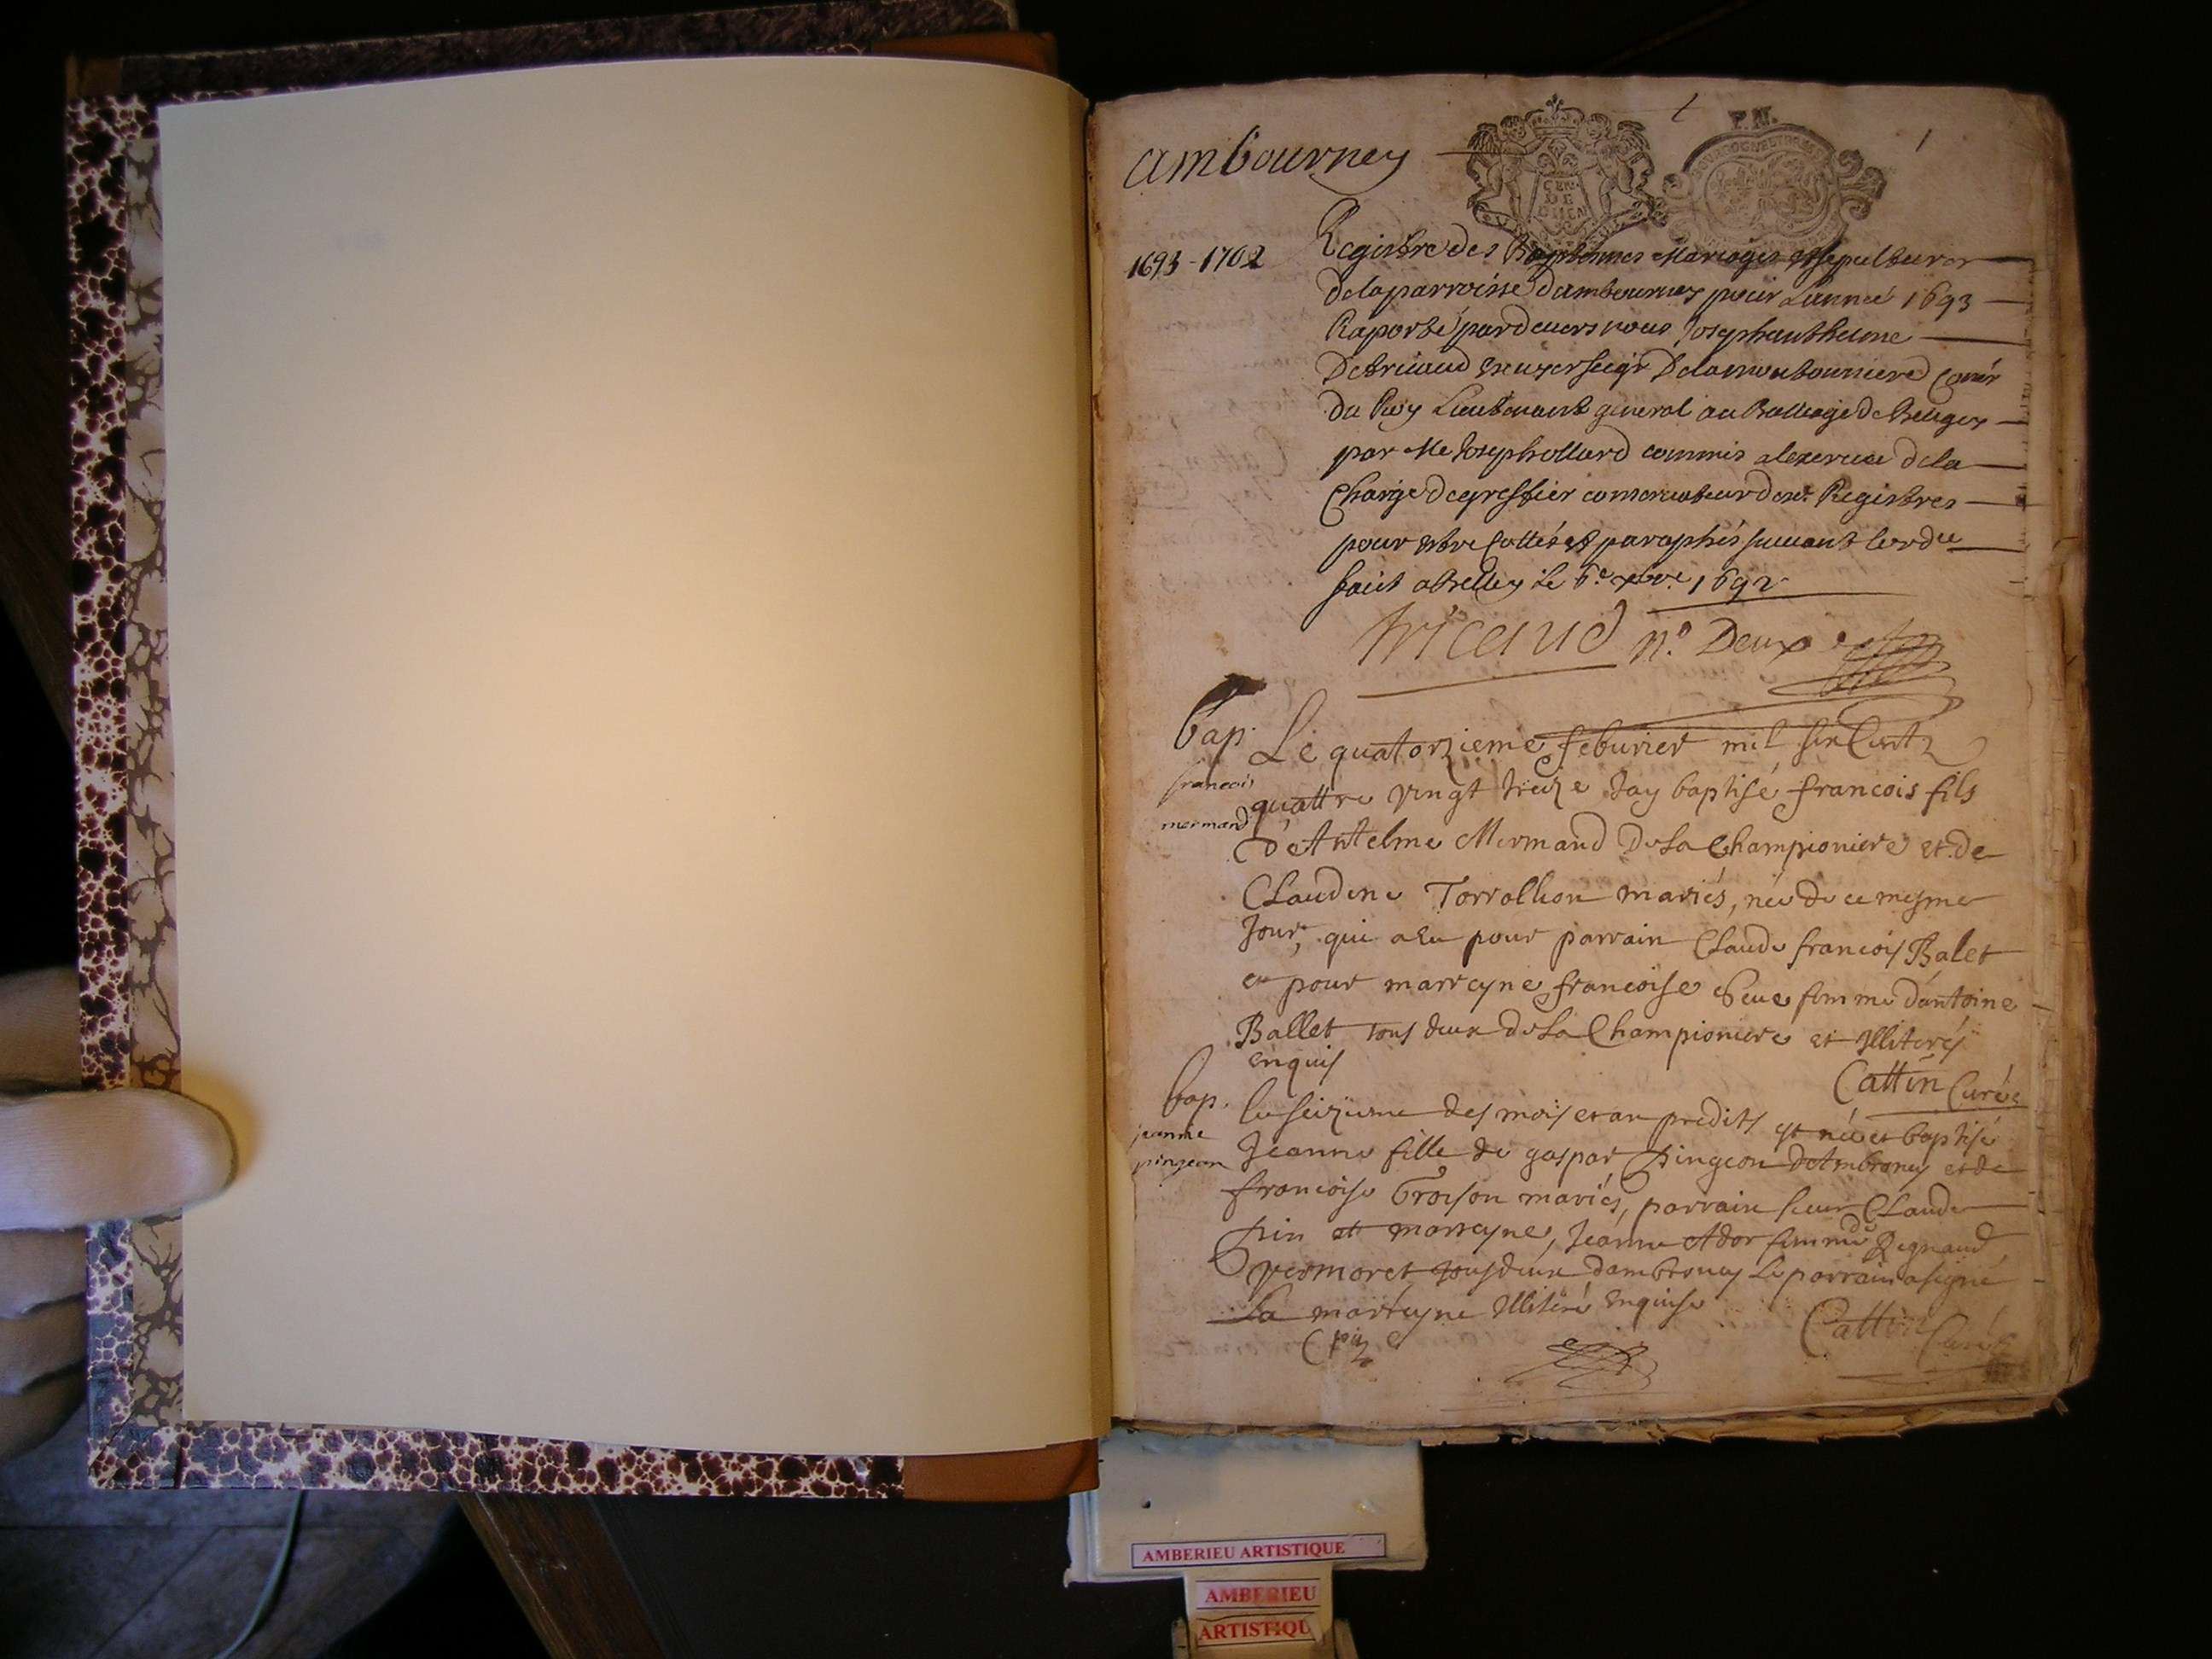 ambourney
P. N.
GEN.
DE
DIJON
1693 - 1702
Registre des Baptesmes Mariages et sepultures
de la parroisse dambournay pour Lannée 1693
Raporté pardevers nous Joseph anthelme
De tricaud escuyer seigr De la
du Roy Lieutenant general au Balliage de Bellay
par Me Joseph ollard commis a lexercice de la
Charge de greffier conservateur des Registres
pour estre Cottés et paraphés suivant led
fait a Belley le 6e xbre 1692
tricaud no. Deux
bap. Le quatorzieme feburier mil six Cent
francois
mermand
quattre vingt treize Jay baptisé francois fils
d'Antelme Mermand De La Championiere et de
Claudine Torrollion mariés, née de ce mesme
Jour, qui a Eu pour parrain Claude francois Balet
et pour marreyne francoise femme d'antoine
Ballet tous deux de La Championiere et Illiterés
enquis
Cattin Curé
bap. le seizieme des mois et an predits est née et baptisé
jeanne
pingeon
Jeanne fille de gaspar pingeon d'Ambronay et de
francoise Groison mariés, parrain sieur Claude
pin et marreyne, Jeanne Ador femme de Regnaud
vermoret tous deux dambronay Le parrain a signé
La marreyne Illiteré Enquise
C pin
Cattin Curé
AMBERIEU ARTISTIQUE
AMBERIEU
ARTISTIQU